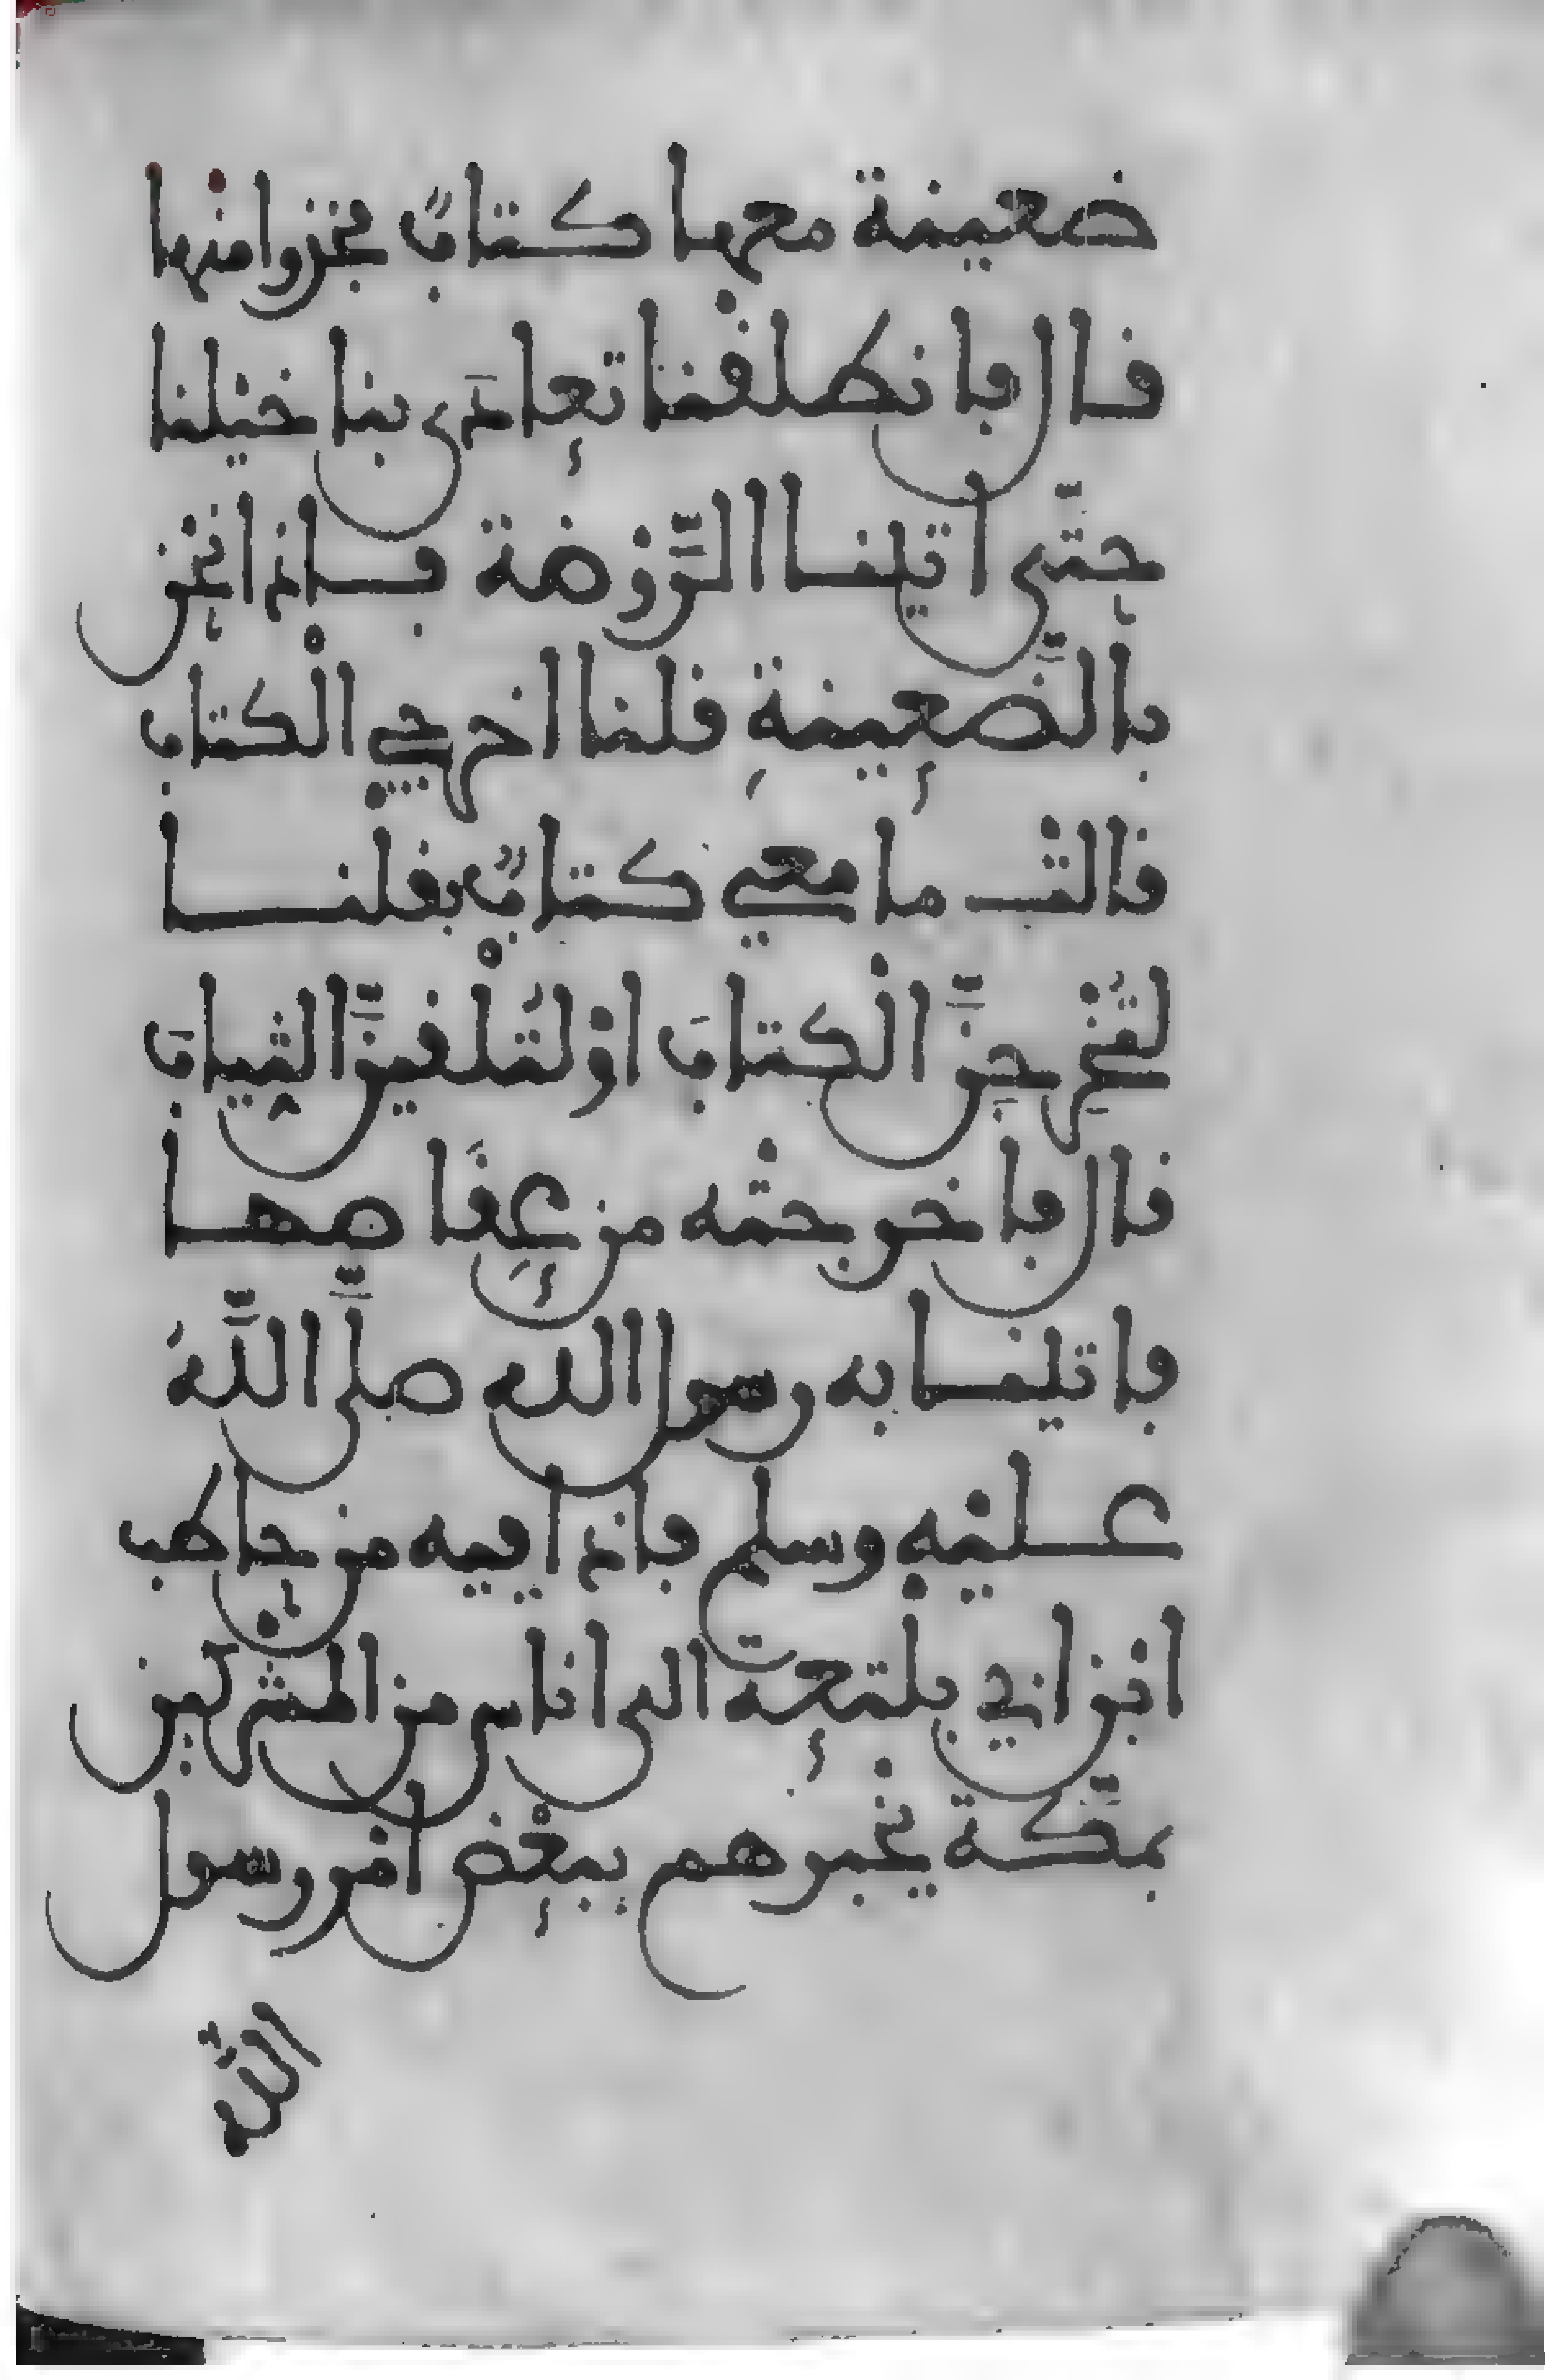 ضعينة معها كتابٌ فخذوا منها
قال فانطلقْنا تعادَى بنا خيْلنا
حتَّى اتينا الرَّوْضة فاذا نحْن
بالضَّعينةِ قلنا اخرجي الْكتاب
قالتْ ما معي كتابٌ فقلنا
لتُخْرِجِنَّ الْكتابَ اوْ لتُلْقينَّ الثياب
قال فاخرجتْه من عِقَاصها
فاتينا به رسول الله صلَّى اللَّهُ
عليْه وسلم فاذا فيه من حاطب
ابن ابي بلْتعة الى اناس من المشْركين
بمكَّة يخْبرهم ببعْض امْر رسول
اللَّه